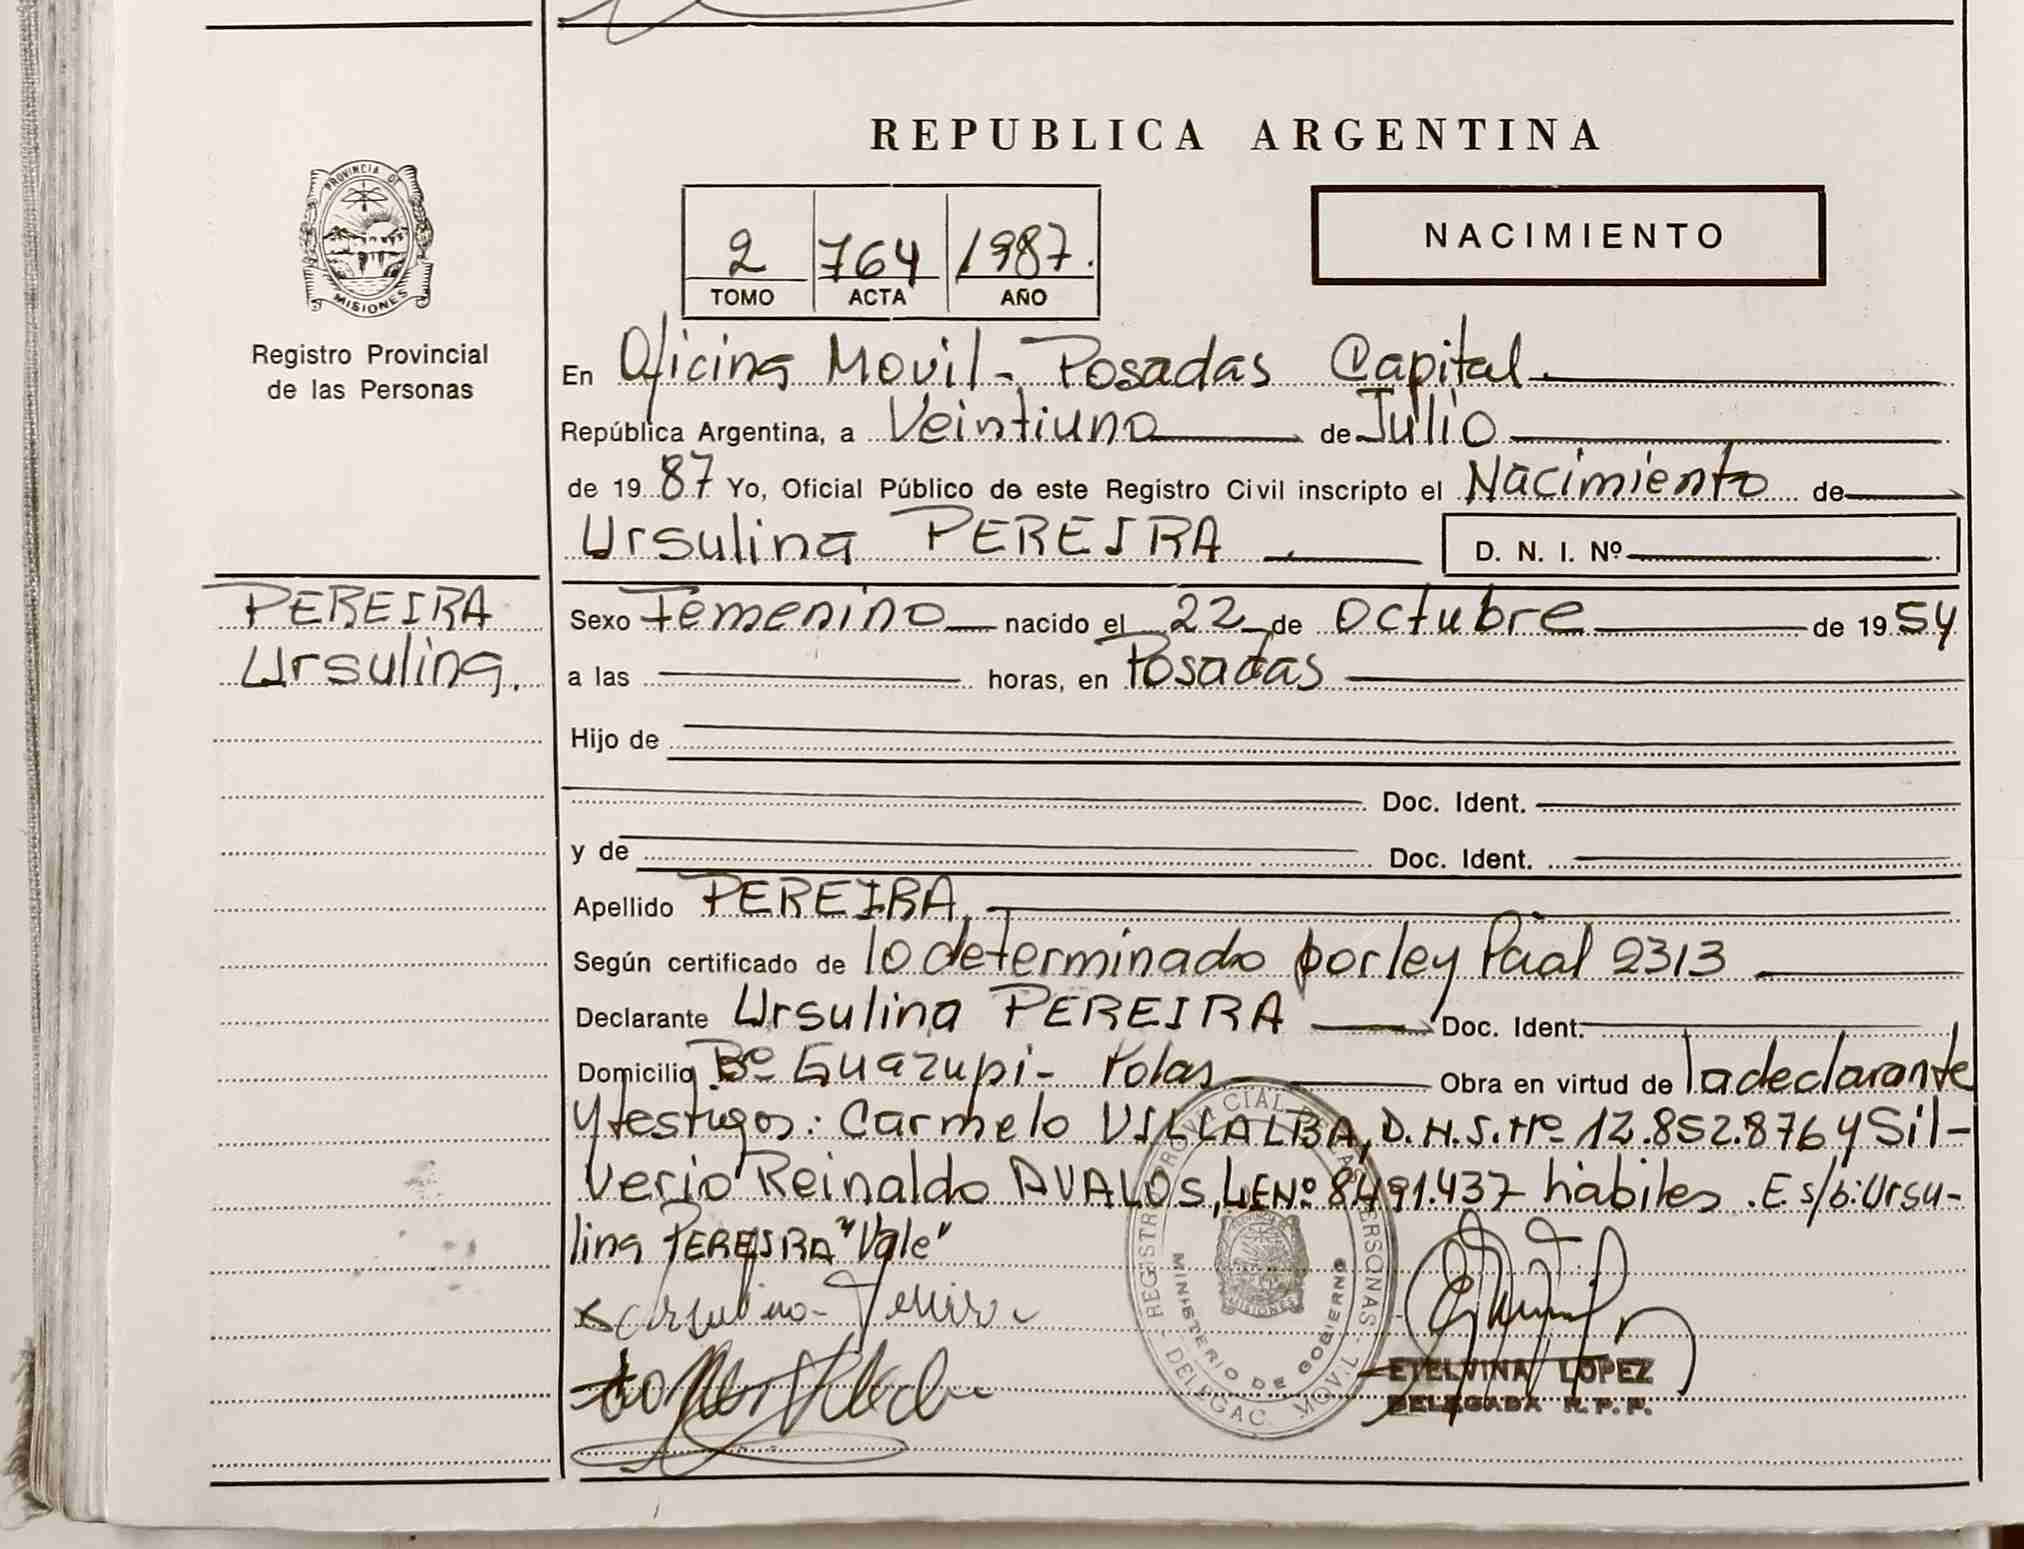 REPUBLICA ARGENTINA
PROVINCIA DE
MISIONES
Registro Provincial
de las Personas
2 764 1987.
TOMO ACTA AÑO
NACIMIENTO
En Oficina Movil - Posadas Capital.
República Argentina, a Veintiuno de Julio
de 1987 Yo, Oficial Público de este Registro Civil inscripto el Nacimiento de
Ursulina PEREIRA D. N. I. Nº
PEREIRA
Ursulina.
Sexo Femenino nacido el 22 de Octubre de 1954
a las horas, en Posadas
Hijo de
Doc. Ident.
y de Doc. Ident.
Apellido PEREIRA,
Según certificado de lo determinado por ley Pcial 2313
Declarante Ursulina PEREIRA Doc. Ident.
Domicilio Bº Guazupi - Pdas Obra en virtud de la declarante
y testigos: Carmelo VILLALBA, D.N.I. Nº 12.852.876 y Sil-
verio Reinaldo AVALOS, LE Nº 8491.437 habiles. E s/b: Ursu-
lina PEREIRA "Vale"
REGISTRO PROVINCIAL DE LAS PERSONAS - DELEGAC. MOVIL -
MINISTERIO DE GOBIERNO
MISIONES
ETELVINA LOPEZ
DELEGADA R.P.P.